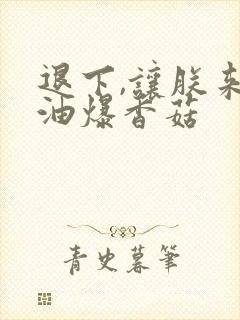 退下,讓朕来
油爆香菇
青史暮筆